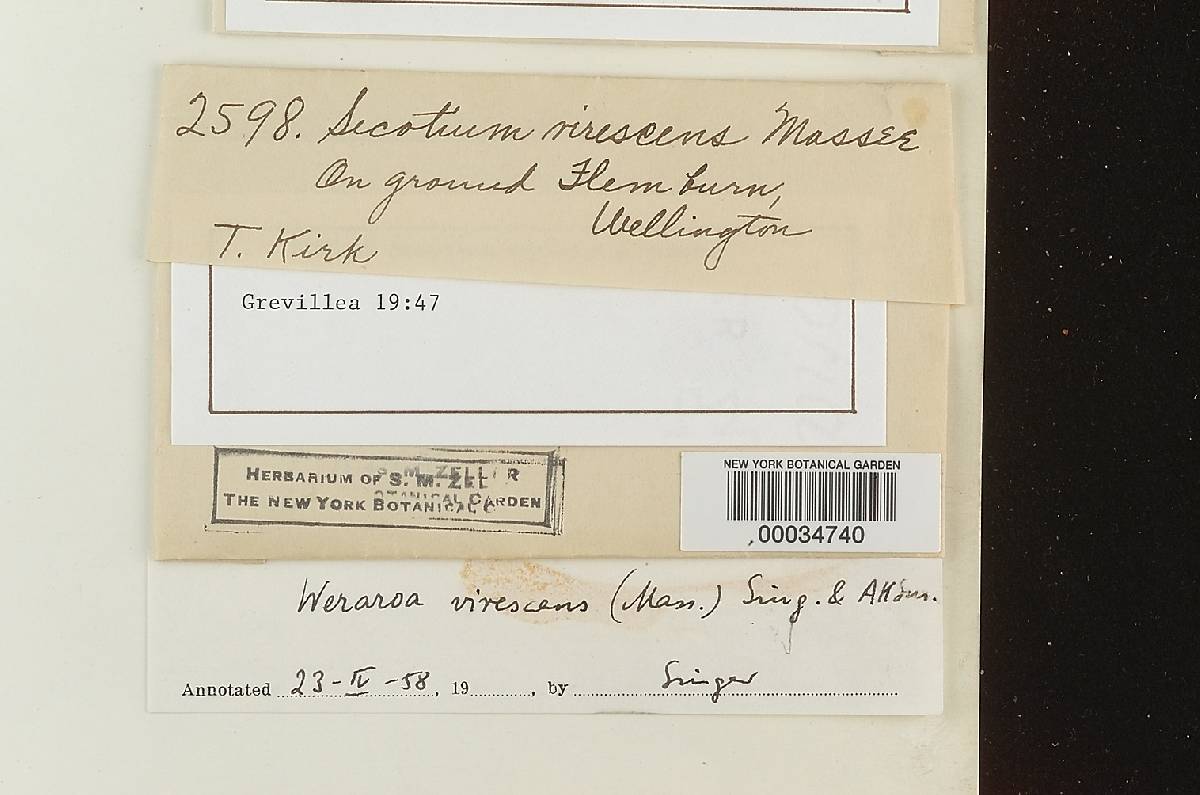 2598. Secotium virescens Massee
On ground Flem burn,
Wellington
T. Kirk
Grevillea 19:47
HERBARIUM OF S. M. ZELLER
THE NEW YORK BOTANICAL GARDEN
NEW YORK BOTANICAL GARDEN
00034740
Weraroa virescens (Mass.) Sing. & AHSm.
Annotated 23-IV-58, 19 , by Singer